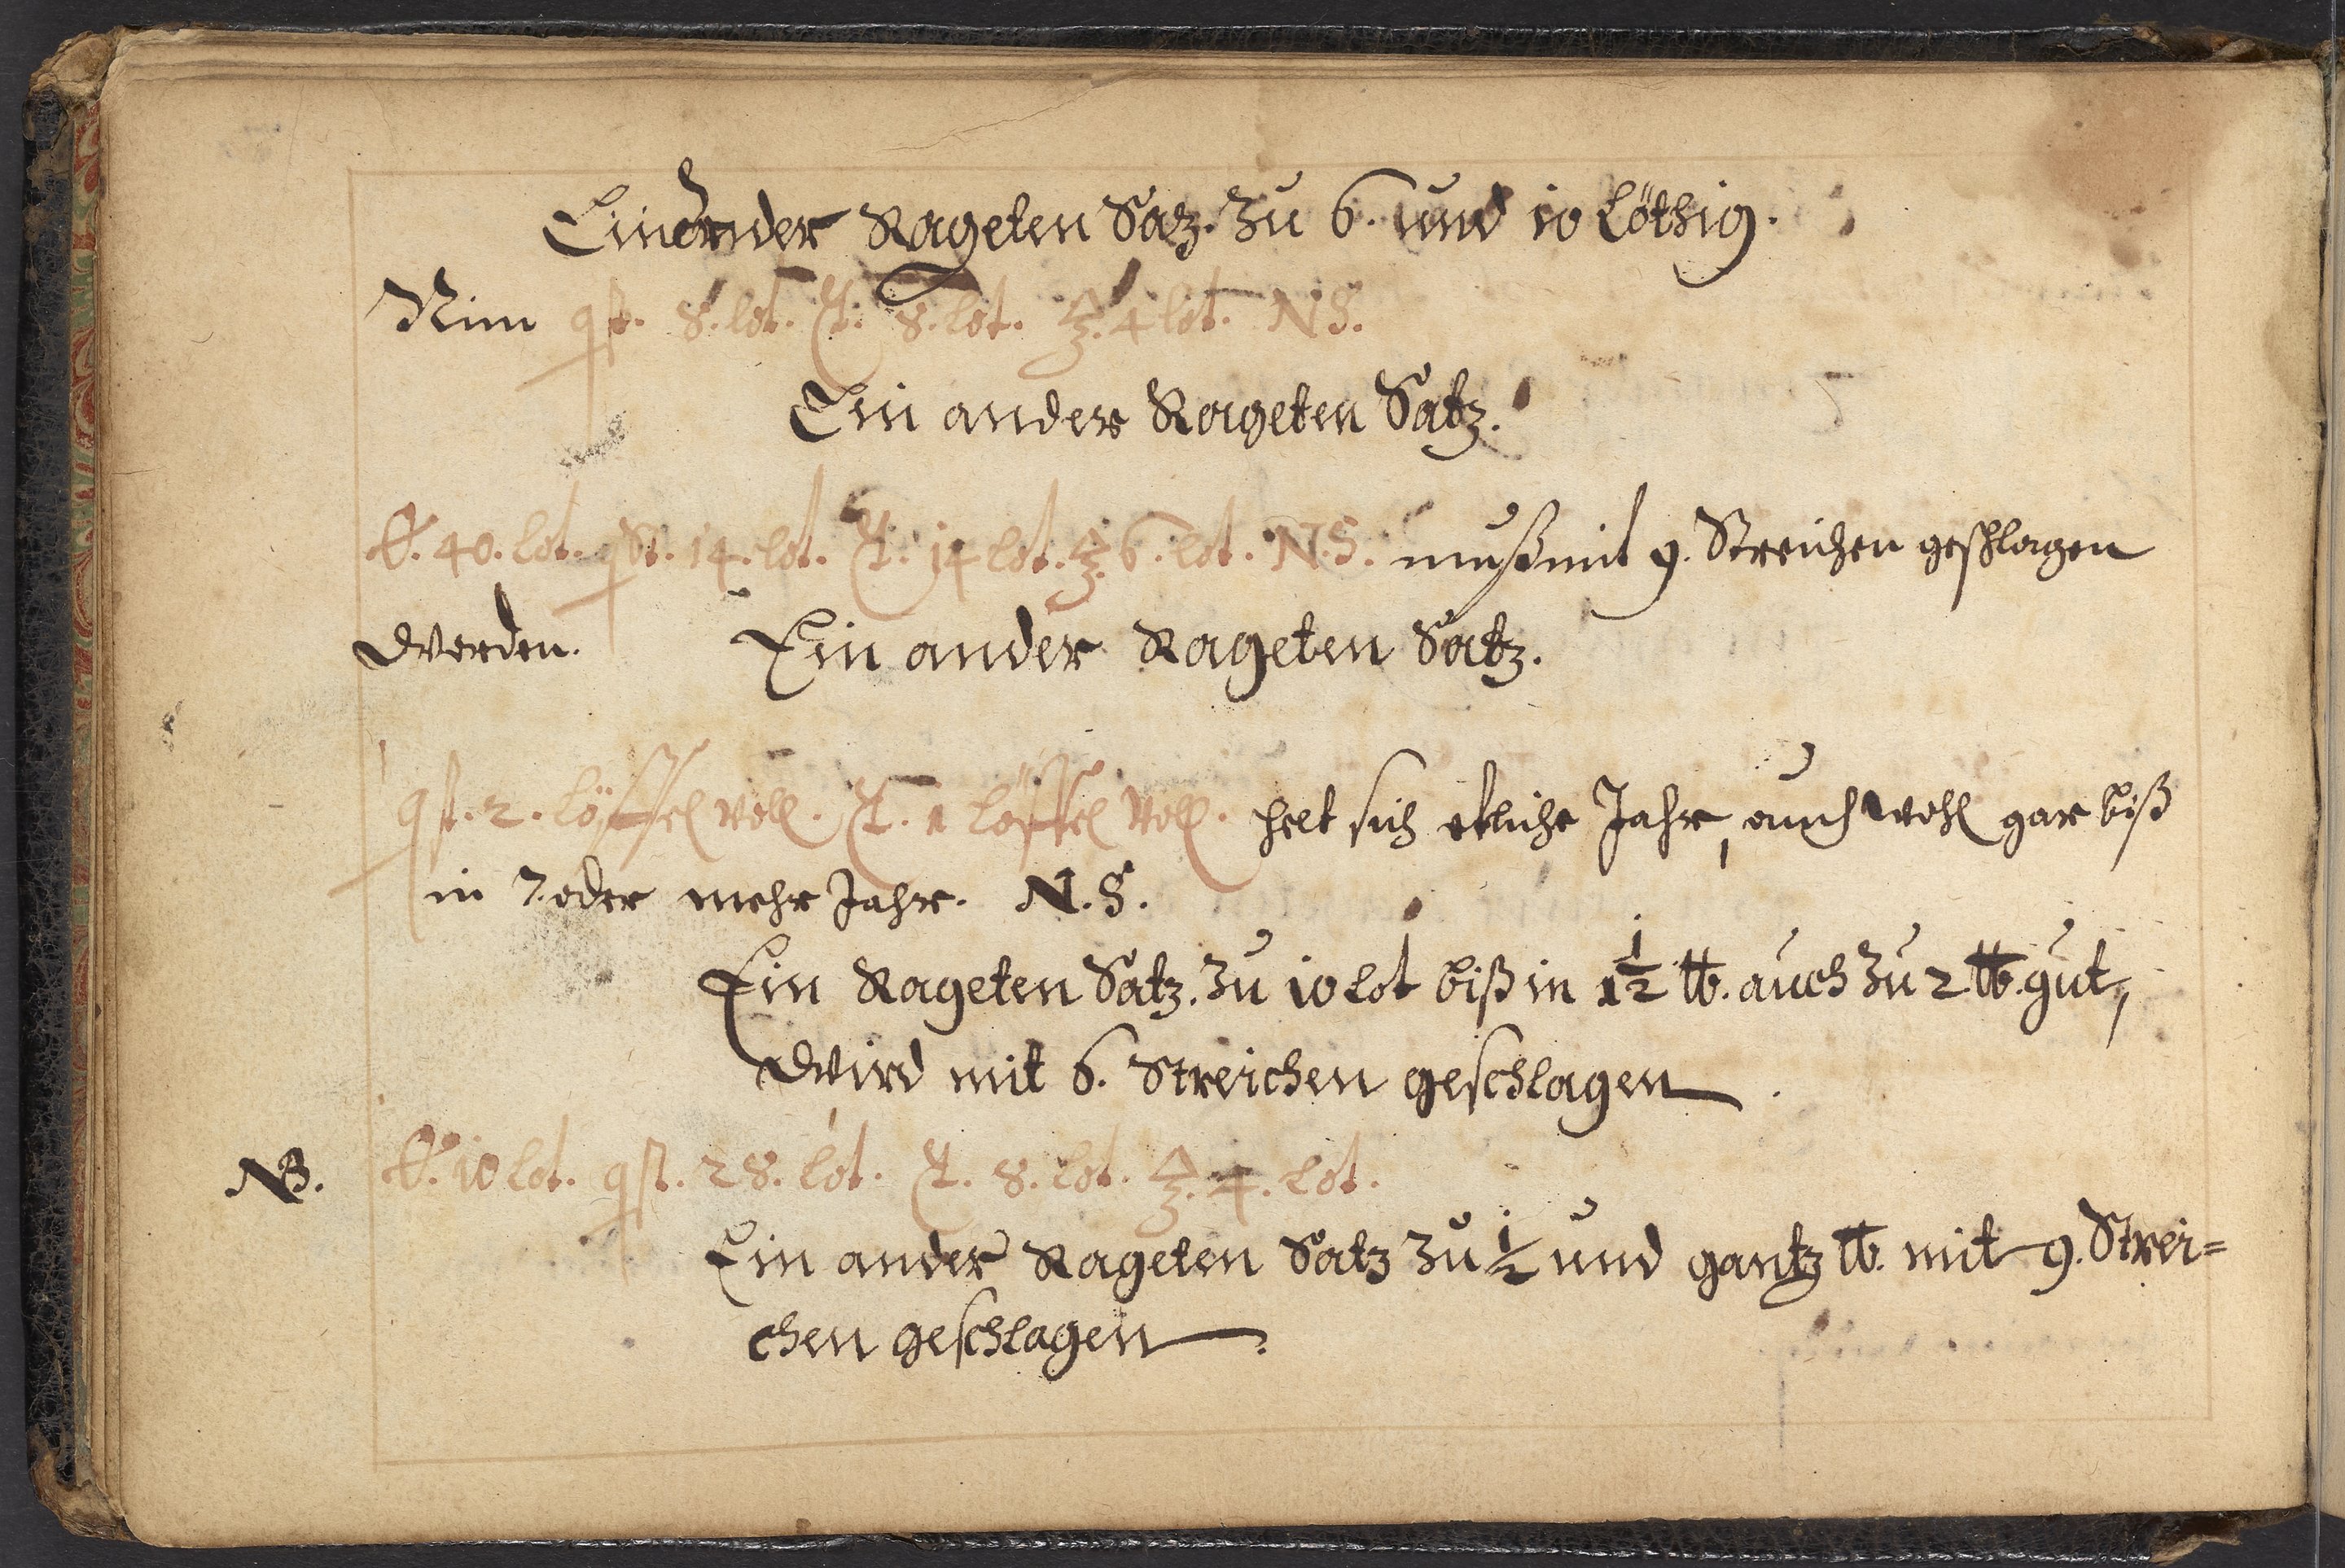 Ein ander Rageten Satz. zu 6. und 10 löthig.
Nim 8. lot. 8. lot. 4 lot. N S.
Ein ander Rageten Satz.
40. lot. 14. lot. 14 lot. 6. lot. N. S. muß mit 9. Streichen geschlagen
werden. Ein ander Rageten Satz.
2. löffel voll. 1 löffel voll. helt sich etliche Jahr, auch wohl gar biß
in 7. oder mehr Jahr. N. S.
Ein Rageten Satz. zu 10 lot biß in 1½ ℔. auch zu 2 ℔. gut,
wird mit 6. Streichen geschlagen.
NB. 10 lot. 28. lot. 8. lot. 4. lot.
Ein ander Rageten Satz zu ½ und gantz ℔. mit 9. Strei=
chen geschlagen.